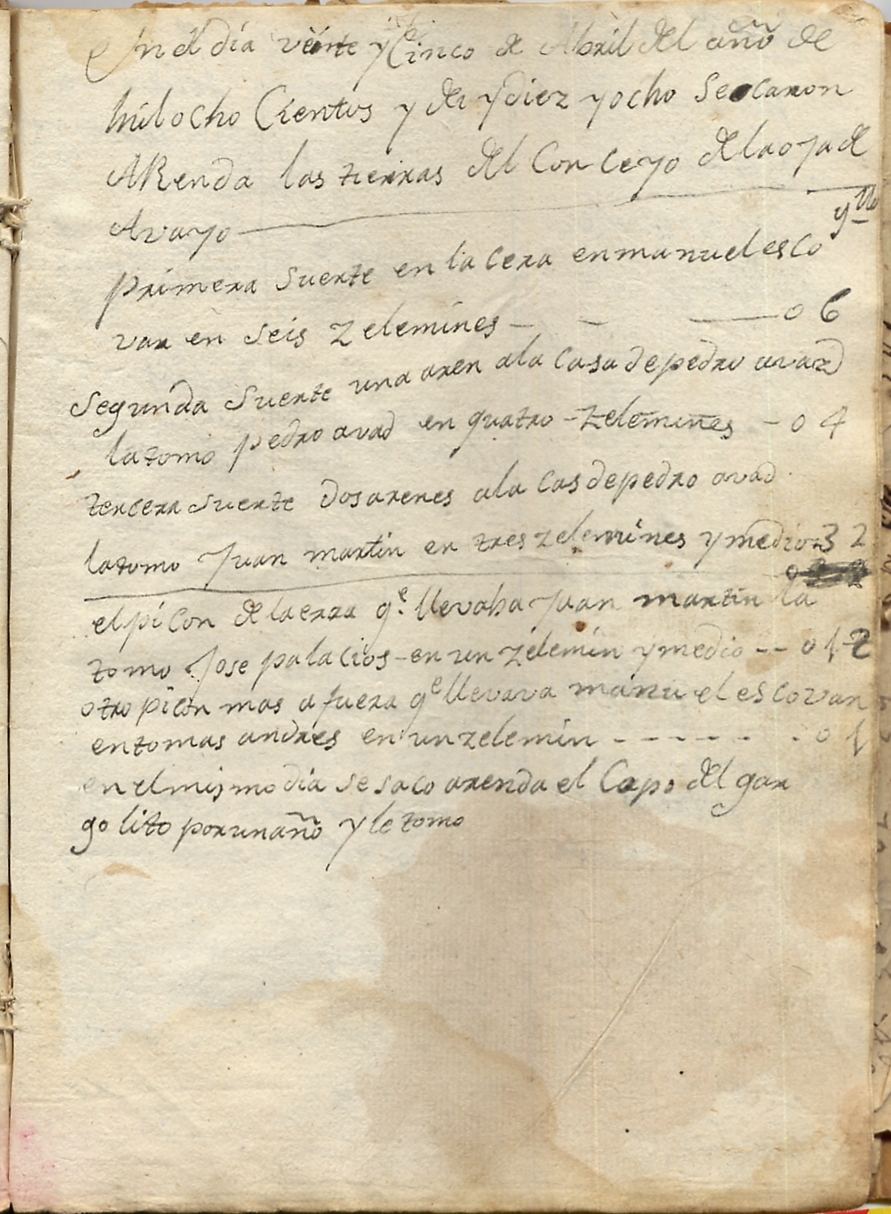 En el dia veinte y Cinco de Abril del año de
Mil ocho Cientos y de y diez y ocho Se sacaron
ARenda las tierras del Conceyo de la oya de
Avayo
primera Suerte en la cera en manuel esco
var en seis zelemines — 0 6
Segunda Suerte una aren ala Casa de pedro avad
la tomo pedro avad en quatro zelemines - 0 4
tercera Suerte Dos arenes ala Cas de pedro avad
la tomo Juan martin en tres zelemines y medio 3 2
el picon de la erra q.e llevaba Juan martin la
tomo Jose palacios en un zelemin y medio -- 0 1 2
otro picon mas a fuera q.e llevava manuel escovar
en tomas andres en un zelemin - - - - - - 0 1
en el mismo dia se saco arenda el Capo del gar
golito por un año y le tomo